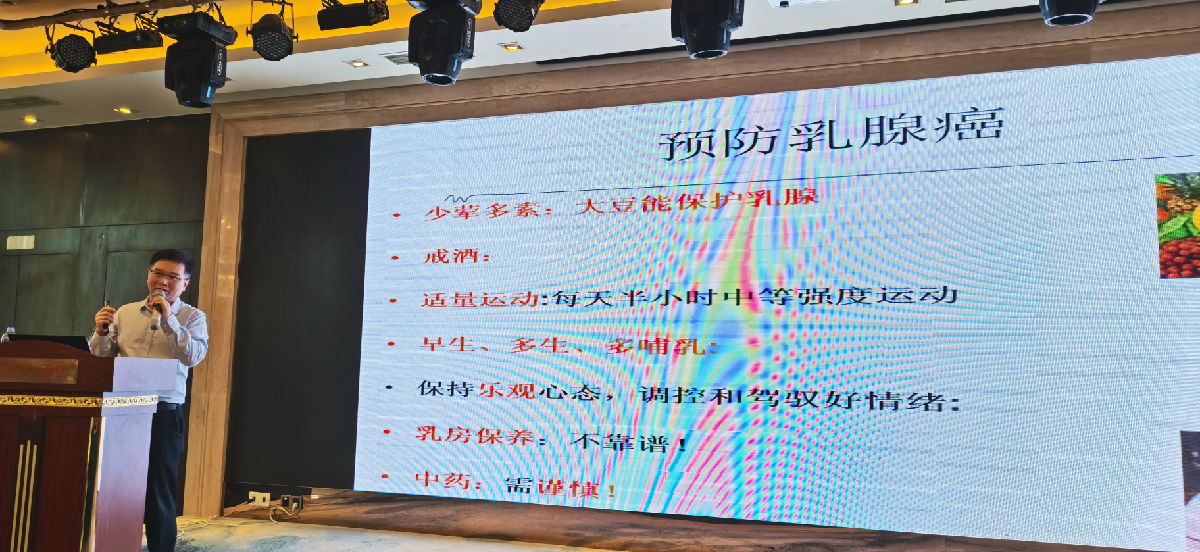 预防乳腺癌
• 少荤多素：大豆能保护乳腺
• 戒酒：
• 适量运动:每天半小时中等强度运动
• 早生、多生、多哺乳：
• 保持乐观心态，调控和驾驭好情绪：
• 乳房保养：不靠谱！
• 中药：需谨慎！